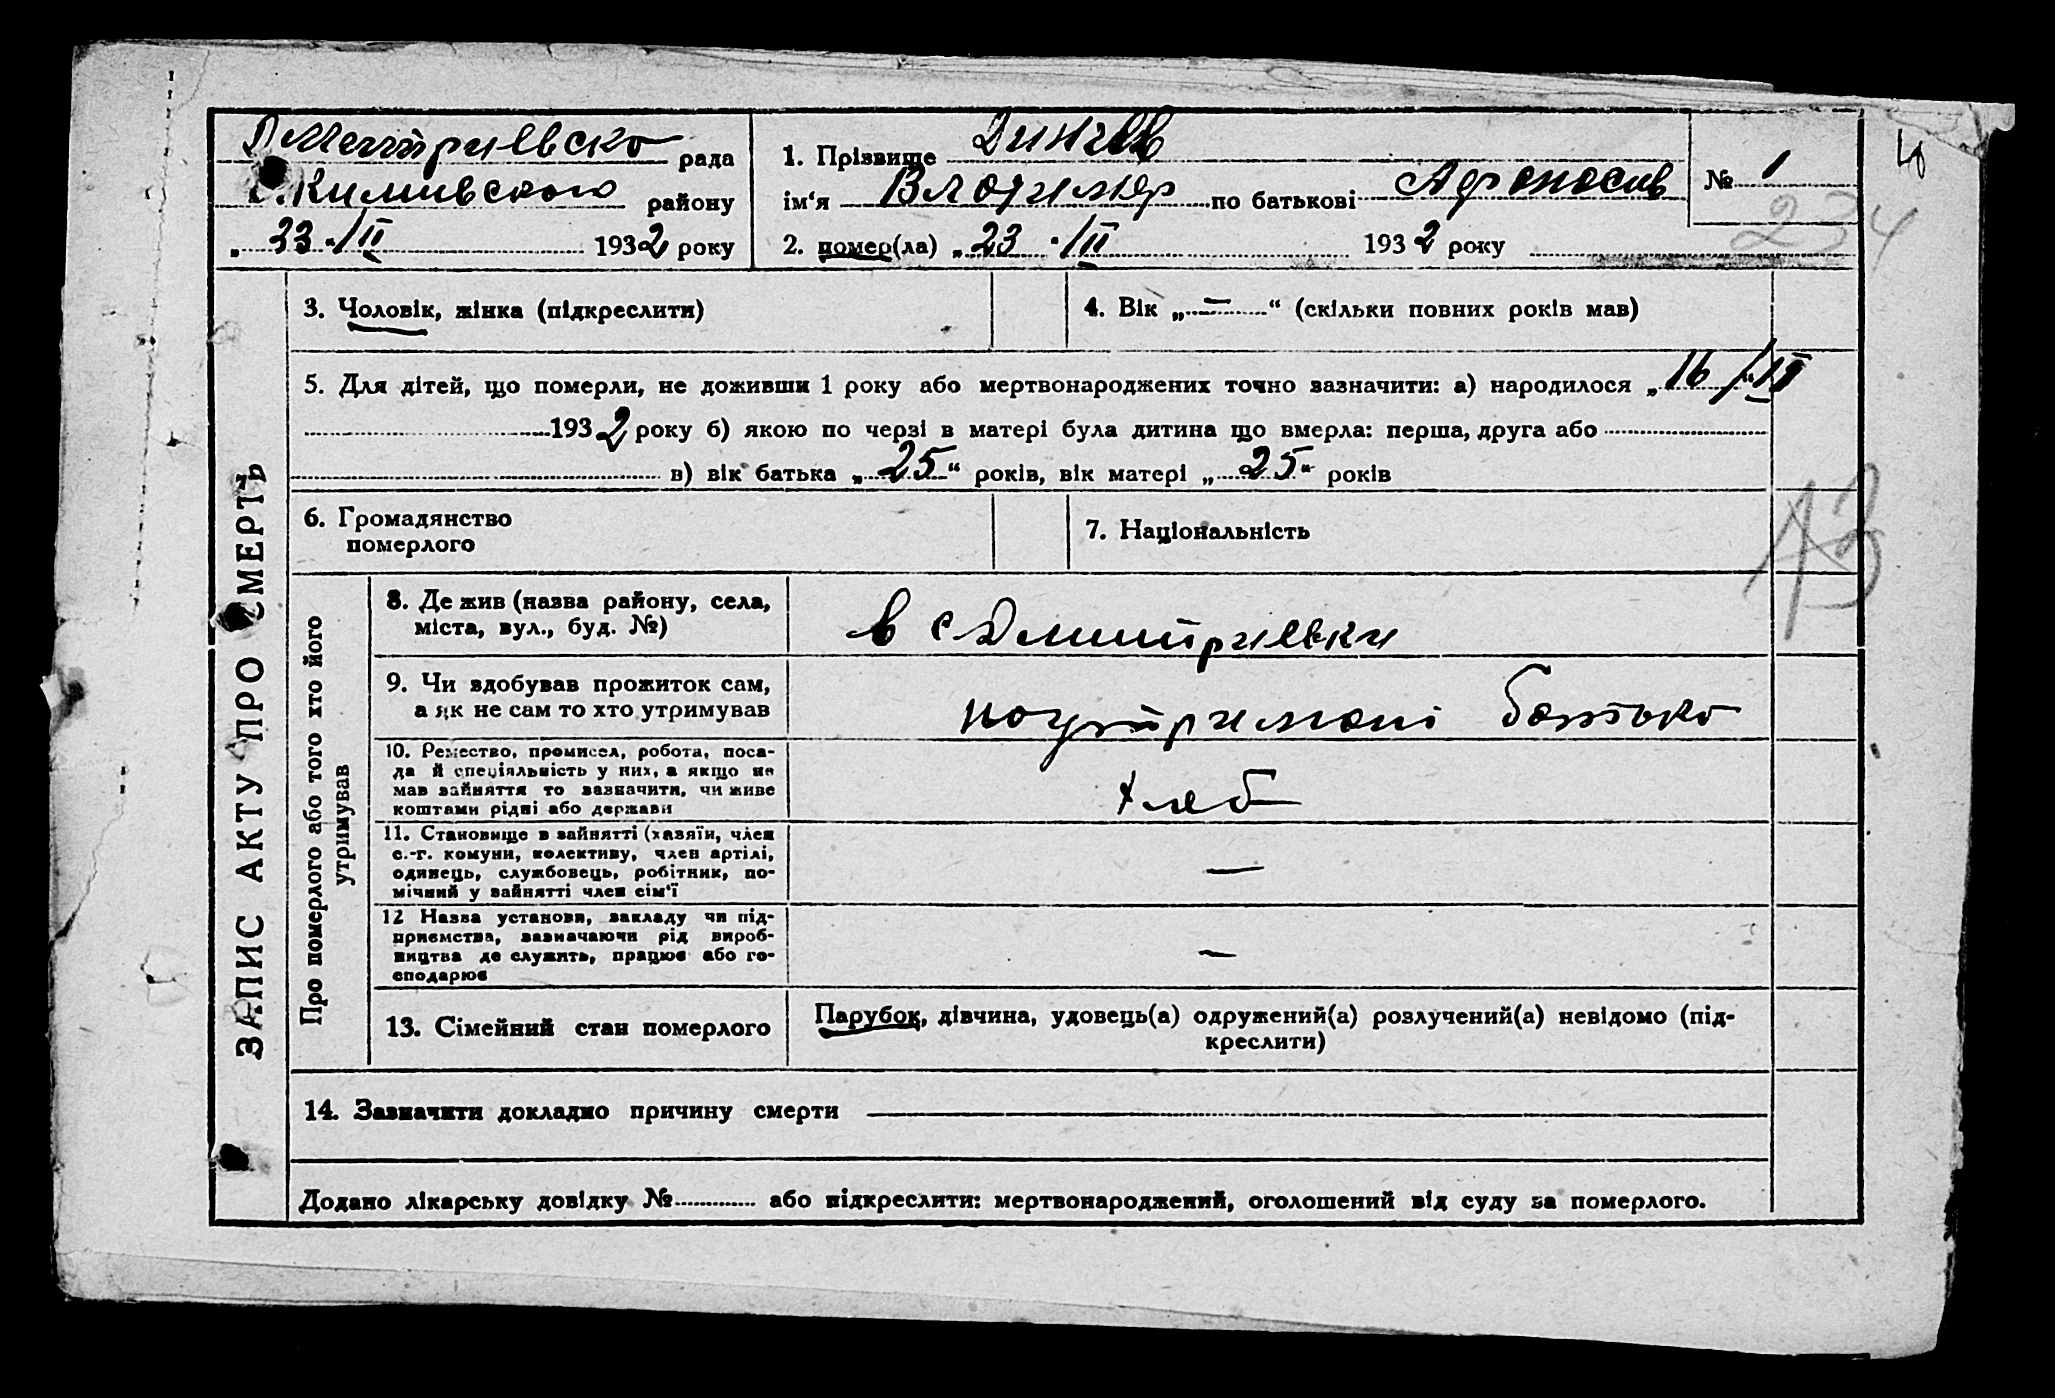 Дмитриевско рада
Кишивского району
„ 23 " / II 1932 року
1. Прізвище Динчев
ім'я Владимер по батькові Афонасив
2. помер(ла) „ 23 " / II 1932 року
№ 1
234
3. Чоловік, жінка (підкреслити)
4. Вік „ — “ (скільки повних років мав)
5. Для дітей, що померли, не доживши 1 року або мертвонароджених точно зазначити: а) народилося „ 16 “ / II
1932 року б) якою по черзі в матері була дитина що вмерла: перша, друга або
в) вік батька „ 25 “ років, вік матері „ 25 “ років
6. Громадянство
померлого
7. Національність
ЗАПИС АКТУ ПРО СМЕРТЬ
Про померлого або того хто його
утримував
8. Де жив (назва району, села,
міста, вул., буд. №)
в с Дмитриевки
9. Чи здобував прожиток сам,
а як не сам то хто утримував
на утримані батько
10. Ремество, промисел, робота, поса-
да й спеціяльність у них, а якщо не
мав зайняття то зазначити, чи живе
коштами рідні або держави
хлеб
11. Становище в зайнятті (хазяїн, член
с.-г. комуни, колективу, член артілі,
одинець, службовець, робітник, по-
мічний у зайнятті член сім'ї
—
12 Назва установи, закладу чи під-
приємства, зазначаючи рід вироб-
ництва де служить, працює або го-
сподарює
—
13. Сімейний стан померлого
Парубок, дівчина, удовець(а) одружений(а) розлучений(а) невідомо (під-
креслити)
14. Зазначити докладно причину смерти
Додано лікарську довідку № або підкреслити: мертвонароджений, оголошений від суду за померлого.